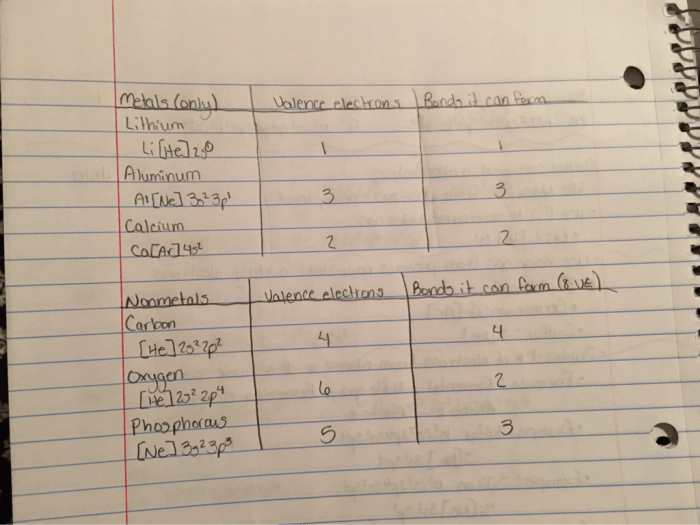 Metals (only) Valence electrons Bonds it can form
Lithium
Li [He] 2s⁰ 1 1
Aluminum
Al [Ne] 3s² 3p¹ 3 3
Calcium
Ca [Ar] 4s² 2 2
Nonmetals Valence electrons Bonds it can form (8-VE)
Carbon
[He] 2s² 2p² 4 4
Oxygen
[He] 2s² 2p⁴ 6 2
Phosphorous
[Ne] 3s² 3p³ 5 3